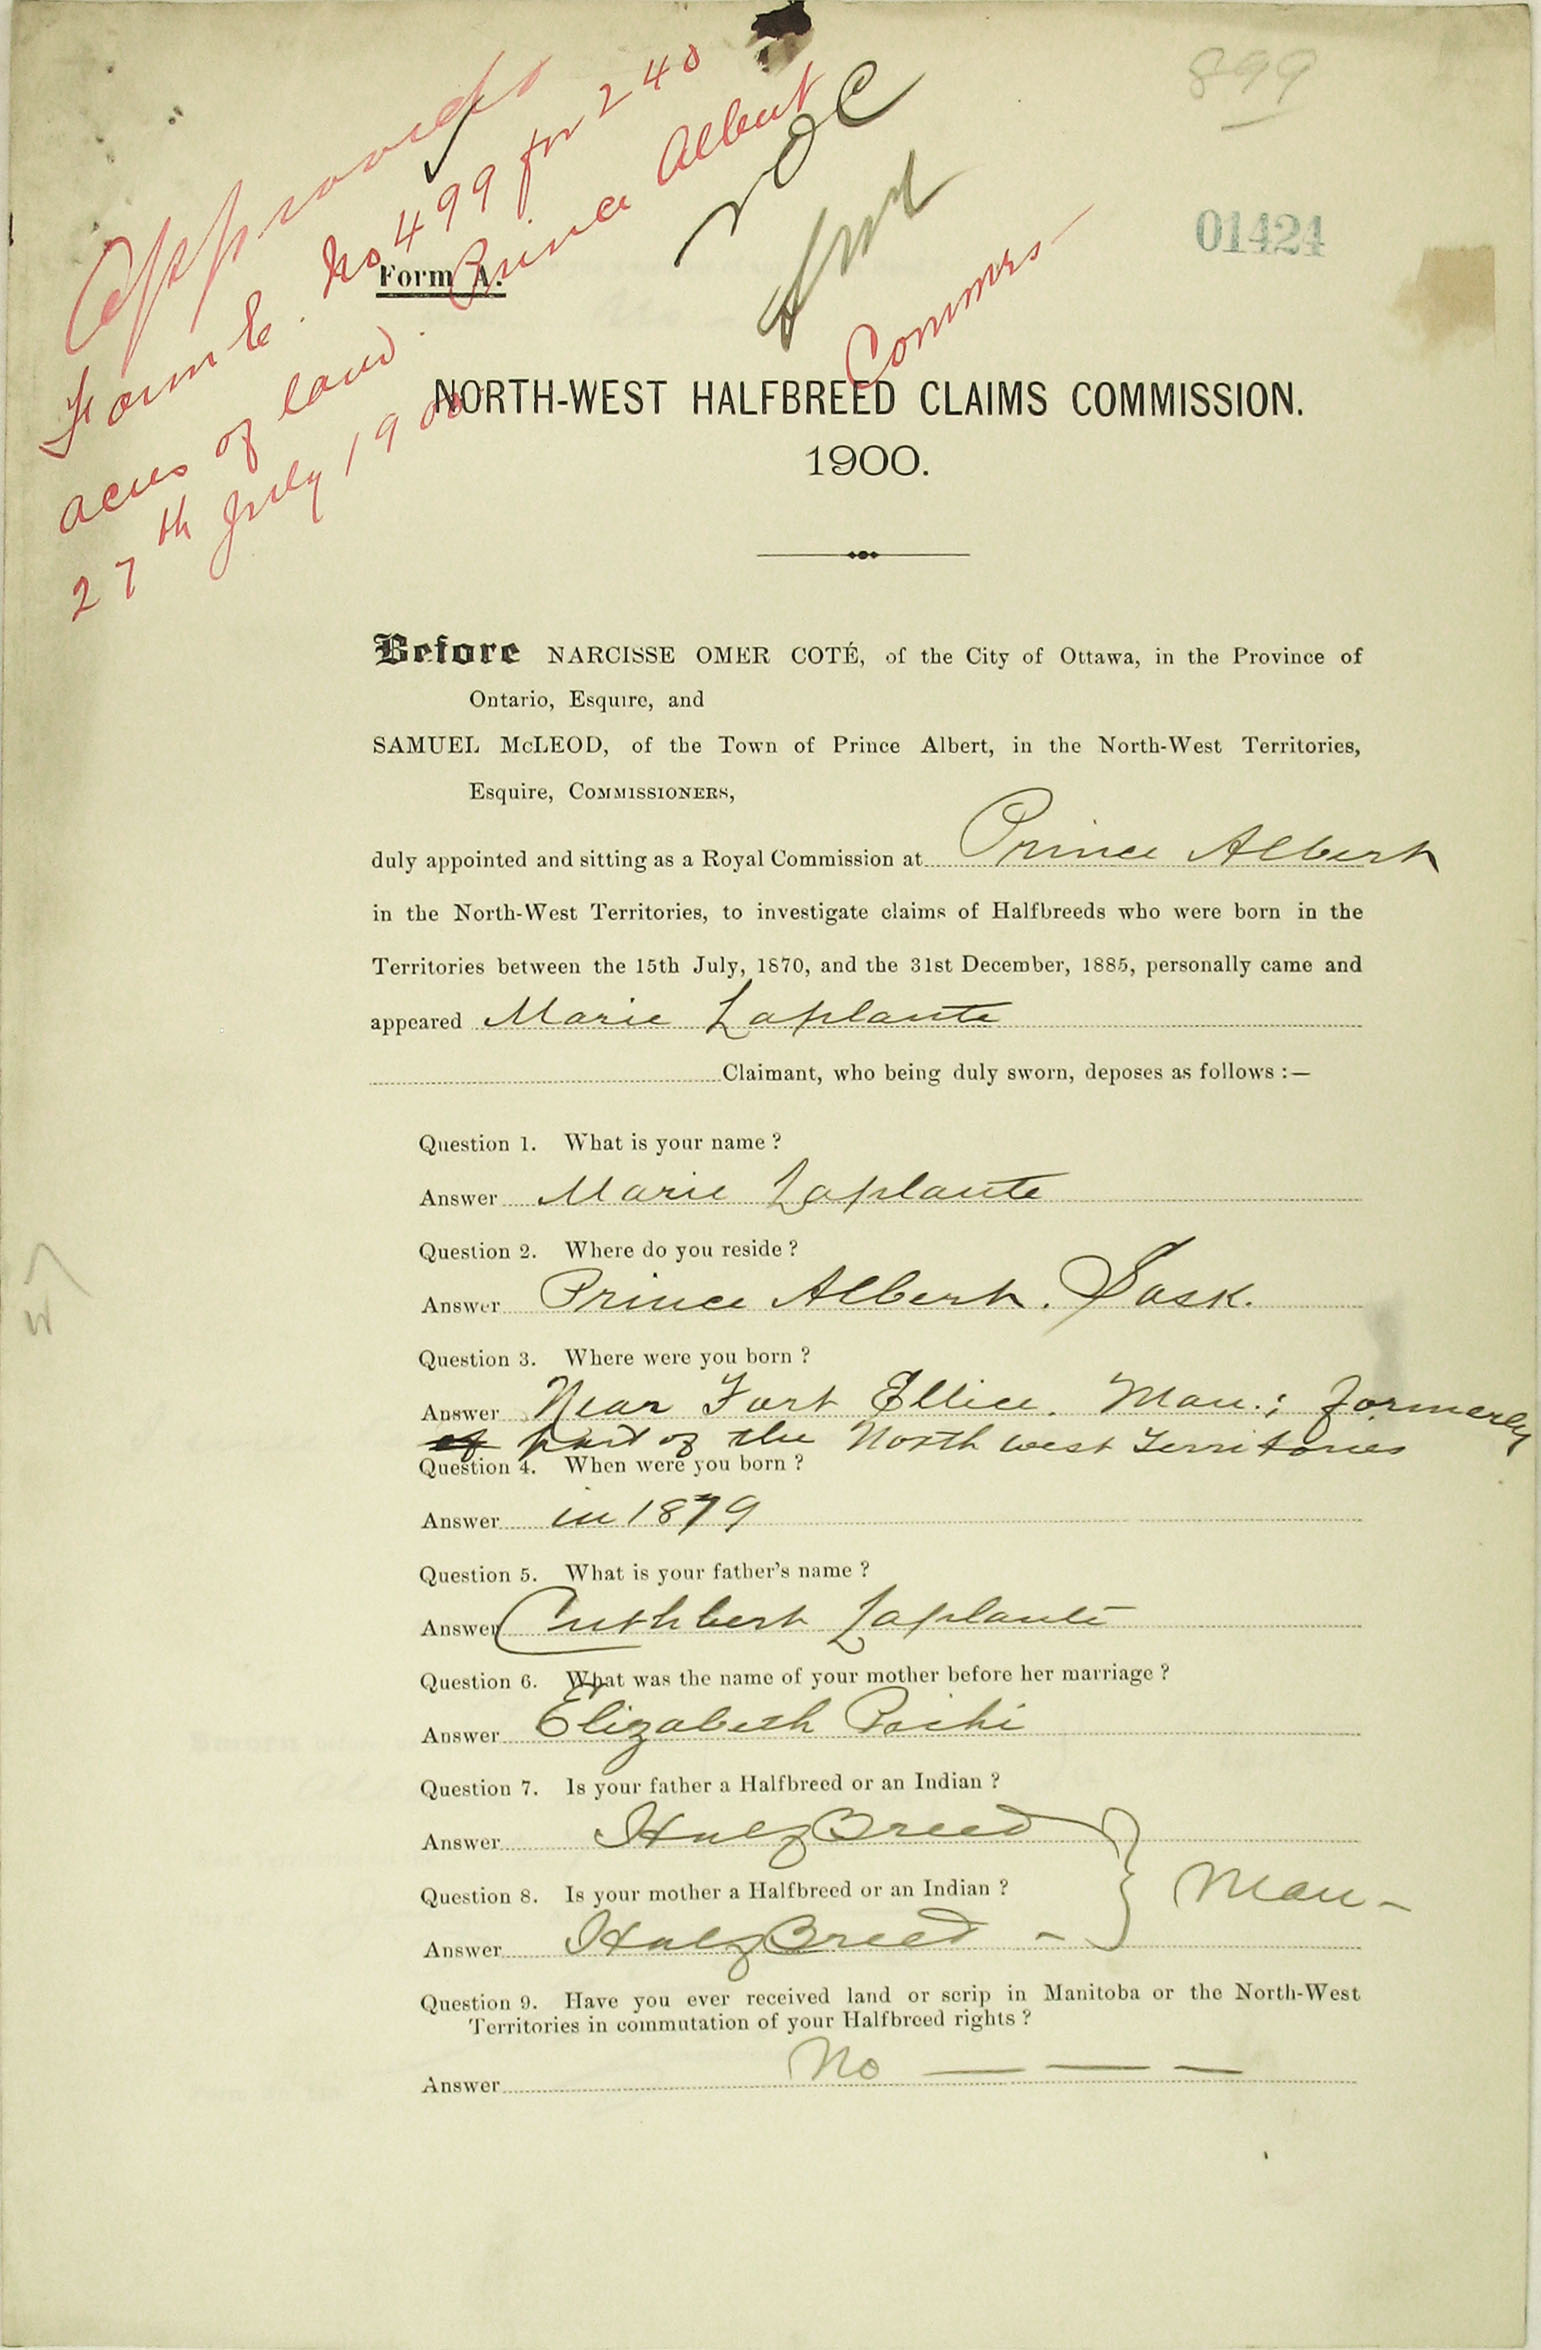 899
01424
Approved
Form E. No 499 for 240
acres of land. Prince Albert
27th July 1900
NOC
Commrs
Form A.
NORTH-WEST HALFBREED CLAIMS COMMISSION.
1900.
Before NARCISSE OMER COTÉ, of the City of Ottawa, in the Province of
Ontario, Esquire, and
SAMUEL McLEOD, of the Town of Prince Albert, in the North-West Territories,
Esquire, COMMISSIONERS,
duly appointed and sitting as a Royal Commission at Prince Albert
in the North-West Territories, to investigate claims of Halfbreeds who were born in the
Territories between the 15th July, 1870, and the 31st December, 1885, personally came and
appeared Marie Laplante
Claimant, who being duly sworn, deposes as follows :—
Question 1. What is your name ?
Answer Marie Laplante
Question 2. Where do you reside ?
Answer Prince Albert. Sask.
Question 3. Where were you born ?
Answer Near Fort Ellice. Man.; formerly
of part of the North west Territories
Question 4. When were you born ?
Answer in 1879
Question 5. What is your father's name ?
Answer Cuthbert Laplante
Question 6. What was the name of your mother before her marriage ?
Answer Elizabeth Pochi
Question 7. Is your father a Halfbreed or an Indian ?
Answer HalfBreed
Question 8. Is your mother a Halfbreed or an Indian ? } Man –
Answer HalfBreed –
Question 9. Have you ever received land or scrip in Manitoba or the North-West
Territories in commutation of your Halfbreed rights ?
Answer No — — —